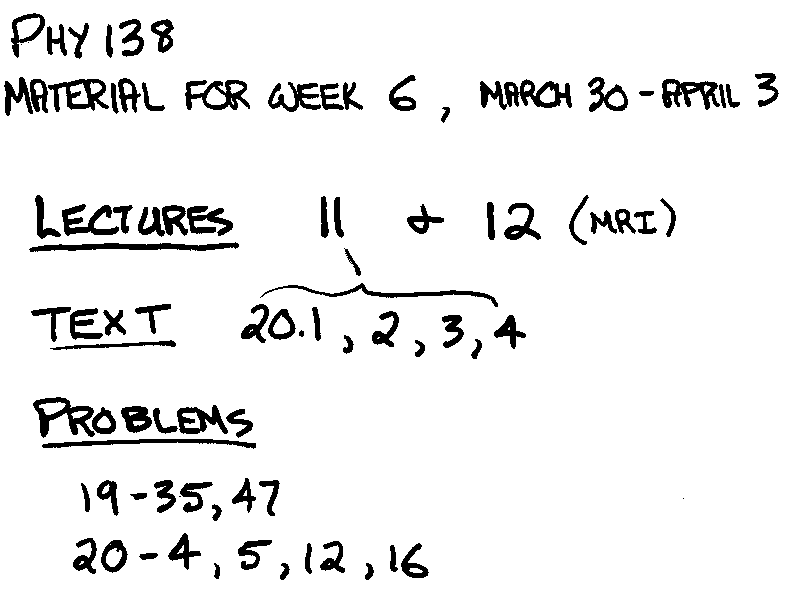 PHY 138
MATERIAL FOR WEEK 6, MARCH 30 - APRIL 3
LECTURES 11 & 12 (MRI)
TEXT 20.1, 2, 3, 4
PROBLEMS
19-35, 47
20-4, 5, 12, 16